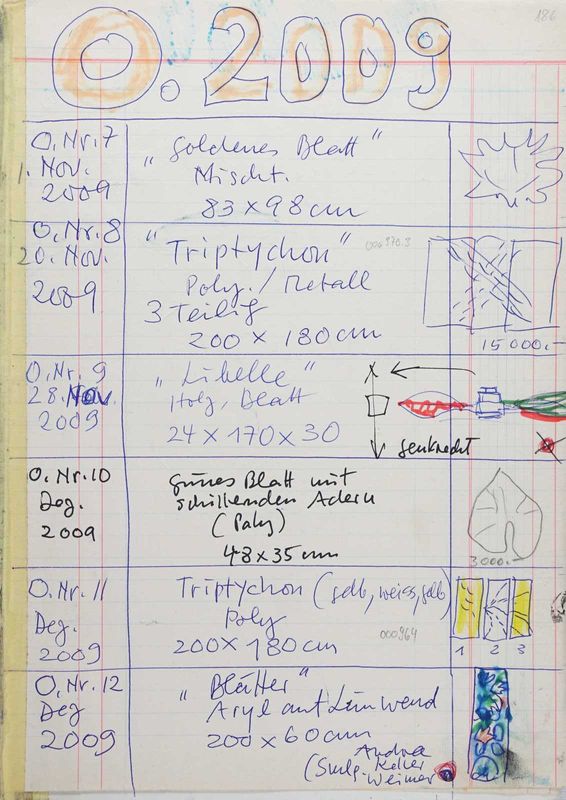 186
O. 2009
O. Nr. 7
1. Nov.
2009
"Goldenes Blatt"
Mischt.
83 x 98 cm
O. Nr. 8
20. Nov.
2009
"Triptychon"
Poly. / Metall
3 Teilig
200 x 180 cm
15000.-
O. Nr. 9
28. Nov.
2009
"Libelle"
Holz, Blatt
24 x 170 x 30
x
senkrecht
O. Nr. 10
Dez.
2009
grünes Blatt mit
schillernden Adern
(Poly)
48 x 35 cm
3000.-
O. Nr. 11
Dez.
2009
Triptychon (gelb, weiss, gelb)
Poly
200 x 180 cm
000964
1 2 3
O. Nr. 12
Dez
2009
"Blätter"
Acryl auf Leinwand
200 x 60 cm
Andrea
(Sculp. Keller
Weimer